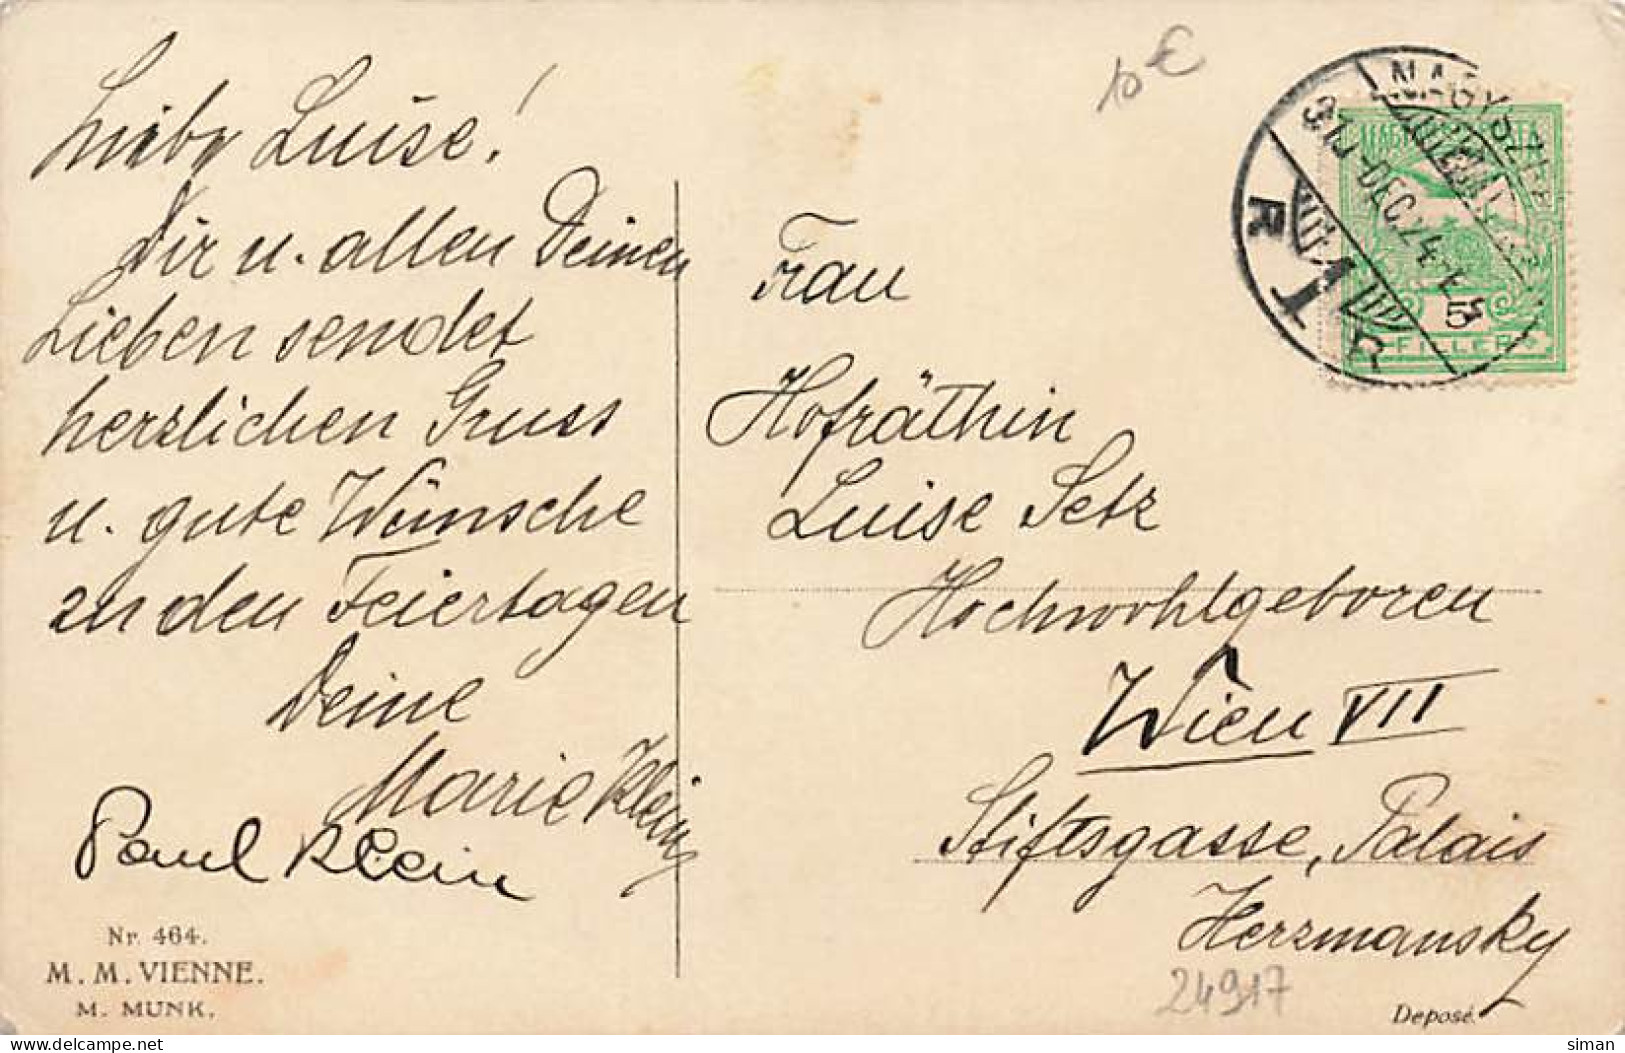 Liebe Luise!
Dir u. allen Deinen
Lieben sendet
herzlichen Gruss
u. gute Wünsche
zu den Feiertagen
Deine
Marie Klein
Paul Klein
Nr. 464.
M. M. VIENNE.
M. MUNK.
10 €
910 DEC 24
MAGYAR
5
FILLÉR
Frau
Hofräthin
Luise Setz
Hochwohlgeboren
Wien VII
Stiftsgasse, Palais
Herzmansky
24917
Deposé.
delcampe.net
siman